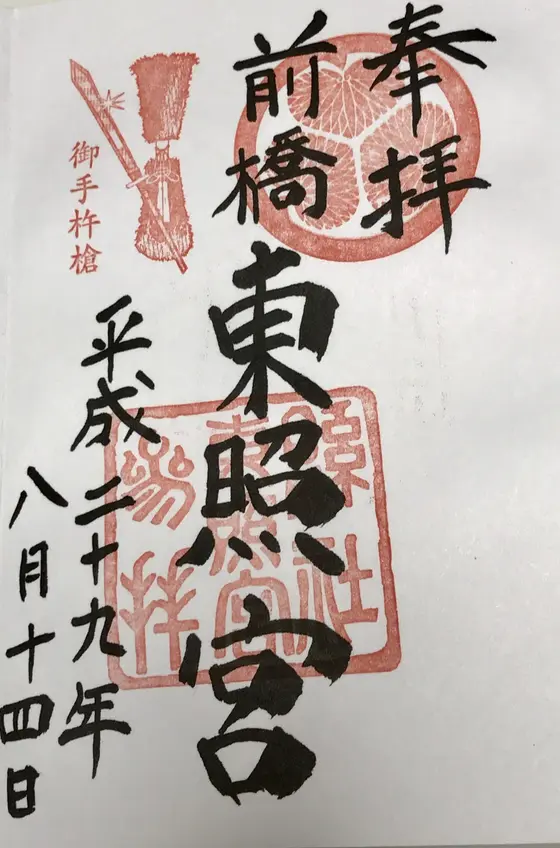 奉拝
前橋
東照宮
平成二十九年
八月十四日
御手杵槍
縣社
東照宮